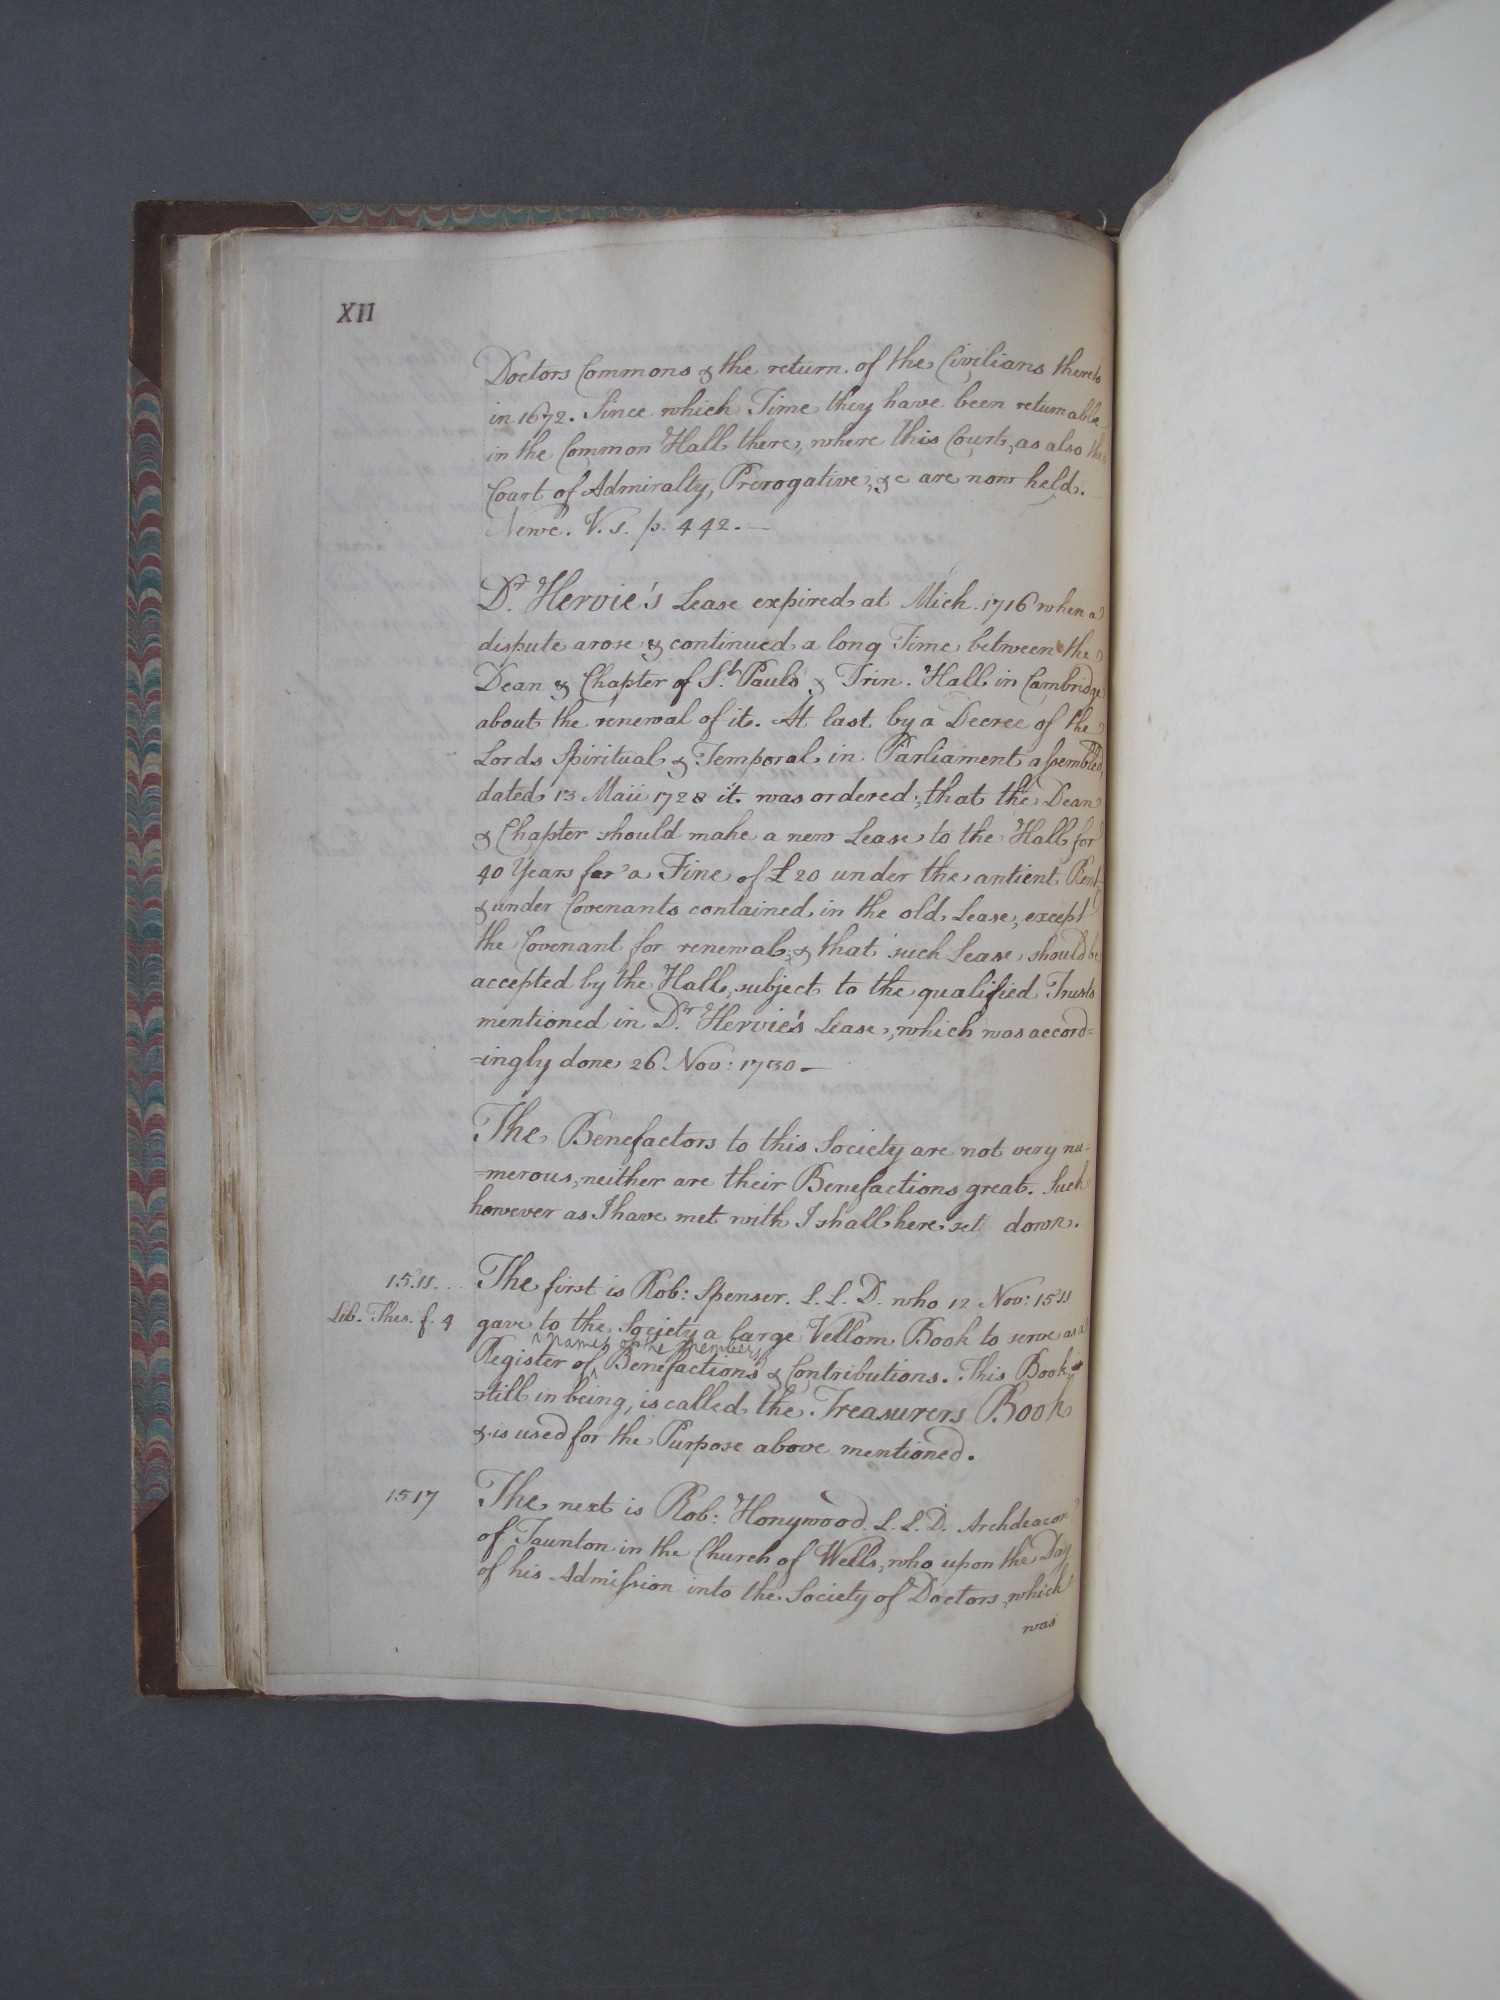 XII
Doctors Commons & the return of the Civilians thereto
in 1672. Since which Time they have been returnable
in the Common Hall there, where this Court, as also the
Court of Admiralty, Prerogative, &c are now held.
Newc. V. 1. p. 442.—
Dr. Hervie's Lease expired at Mich. 1716 when a
dispute arose & continued a long Time between the
Dean & Chapter of St. Pauls & Trin. Hall in Cambridge
about the renewal of it. At last by a Decree of the
Lords Spiritual & Temporal in Parliament assembled,
dated 13 Maii 1728 it was ordered, that the Dean
& Chapter should make a new Lease to the Hall for
40 Years for a Fine of £ 20 under the antient Rent
& under Covenants contained in the old Lease, except
the Covenant for renewal, & that such Lease should be
accepted by the Hall, subject to the qualified Trusts
mentioned in Dr. Hervie's Lease, which was accord=
=ingly done 26 Nov: 1730—
The Benefactors to this Society are not very nu-
-merous, neither are their Benefactions great. Such
however as I have met with I shall here set down.
1511... The first is Rob: Spenser. L. L. D. who 12 Nov: 1511
Lib. Thes. f. 4 gave to the Society a large Vellom Book to serve as a
names of the Members
Register of Benefactions & Contributions. This Book is
still in being, is called the Treasurers Book
& is used for the Purpose above mentioned.
1517 The next is Rob: Honywood L. L. D. Archdeacon
of Taunton in the Church of Wells, who upon the Day
of his Admission into the Society of Doctors, which
was